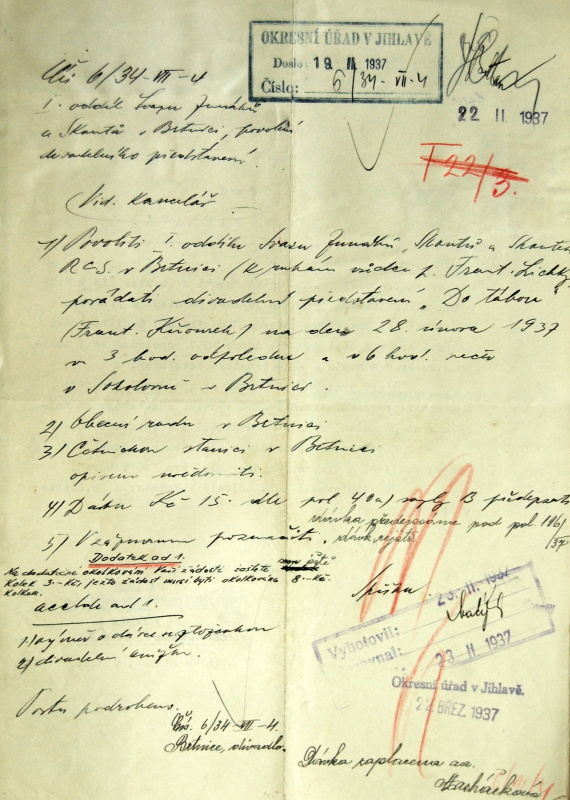 OKRESNÍ ÚŘAD V JIHLAVĚ
Došlo: 19 II 1937
Číslo: 6/34-VII-4
22 II 1937
Čís 6/34-VII-4
I. oddíl Svazu Junáků
a Skautů v Brtnici, povolení
divadelního představení.
F22/3.
Vid. kancelář.
1) Povoliti I. oddílu Svazu Junáků, Skautů a Skautek
R.Č.S. v Brtnici (k rukám vůdce p. Frant. Lichky)
pořádati divadelní představení „Do tábora"
(Frant. ) na den 28. února 1937
ve 3 hod. odpoledne a v 6 hod. večer
v Sokolovně v Brtnici.
2) Obecní radu v Brtnici
3) Četnickou stanici v Brtnici
opisem uvědomiti.
4) Dávku Kč 15. dle pol 40a) B předepsati
dávka předepsána pod pol. 116/37
5) Vzájemnou poznačiti. dávk. rejstř.
Dodatek ad 1.
Na dodatečné okolkování Vaší žádosti zašlete
kolek 3.-Kč, ježto žádost musí býti okolkována 8.-Kč.
kolkem.
ad 1.
1) výměr o dávce se složenkou
2) divadelní knížku.
Vyhotovil: 23. II 1937
23 II 1937
Okresní úřad v Jihlavě.
22 BŘEZ. 1937
Portu podrobeno.
Čís. 6/34-VII-4.
Brtnice, divadlo.
Dávka zaplacena aa.